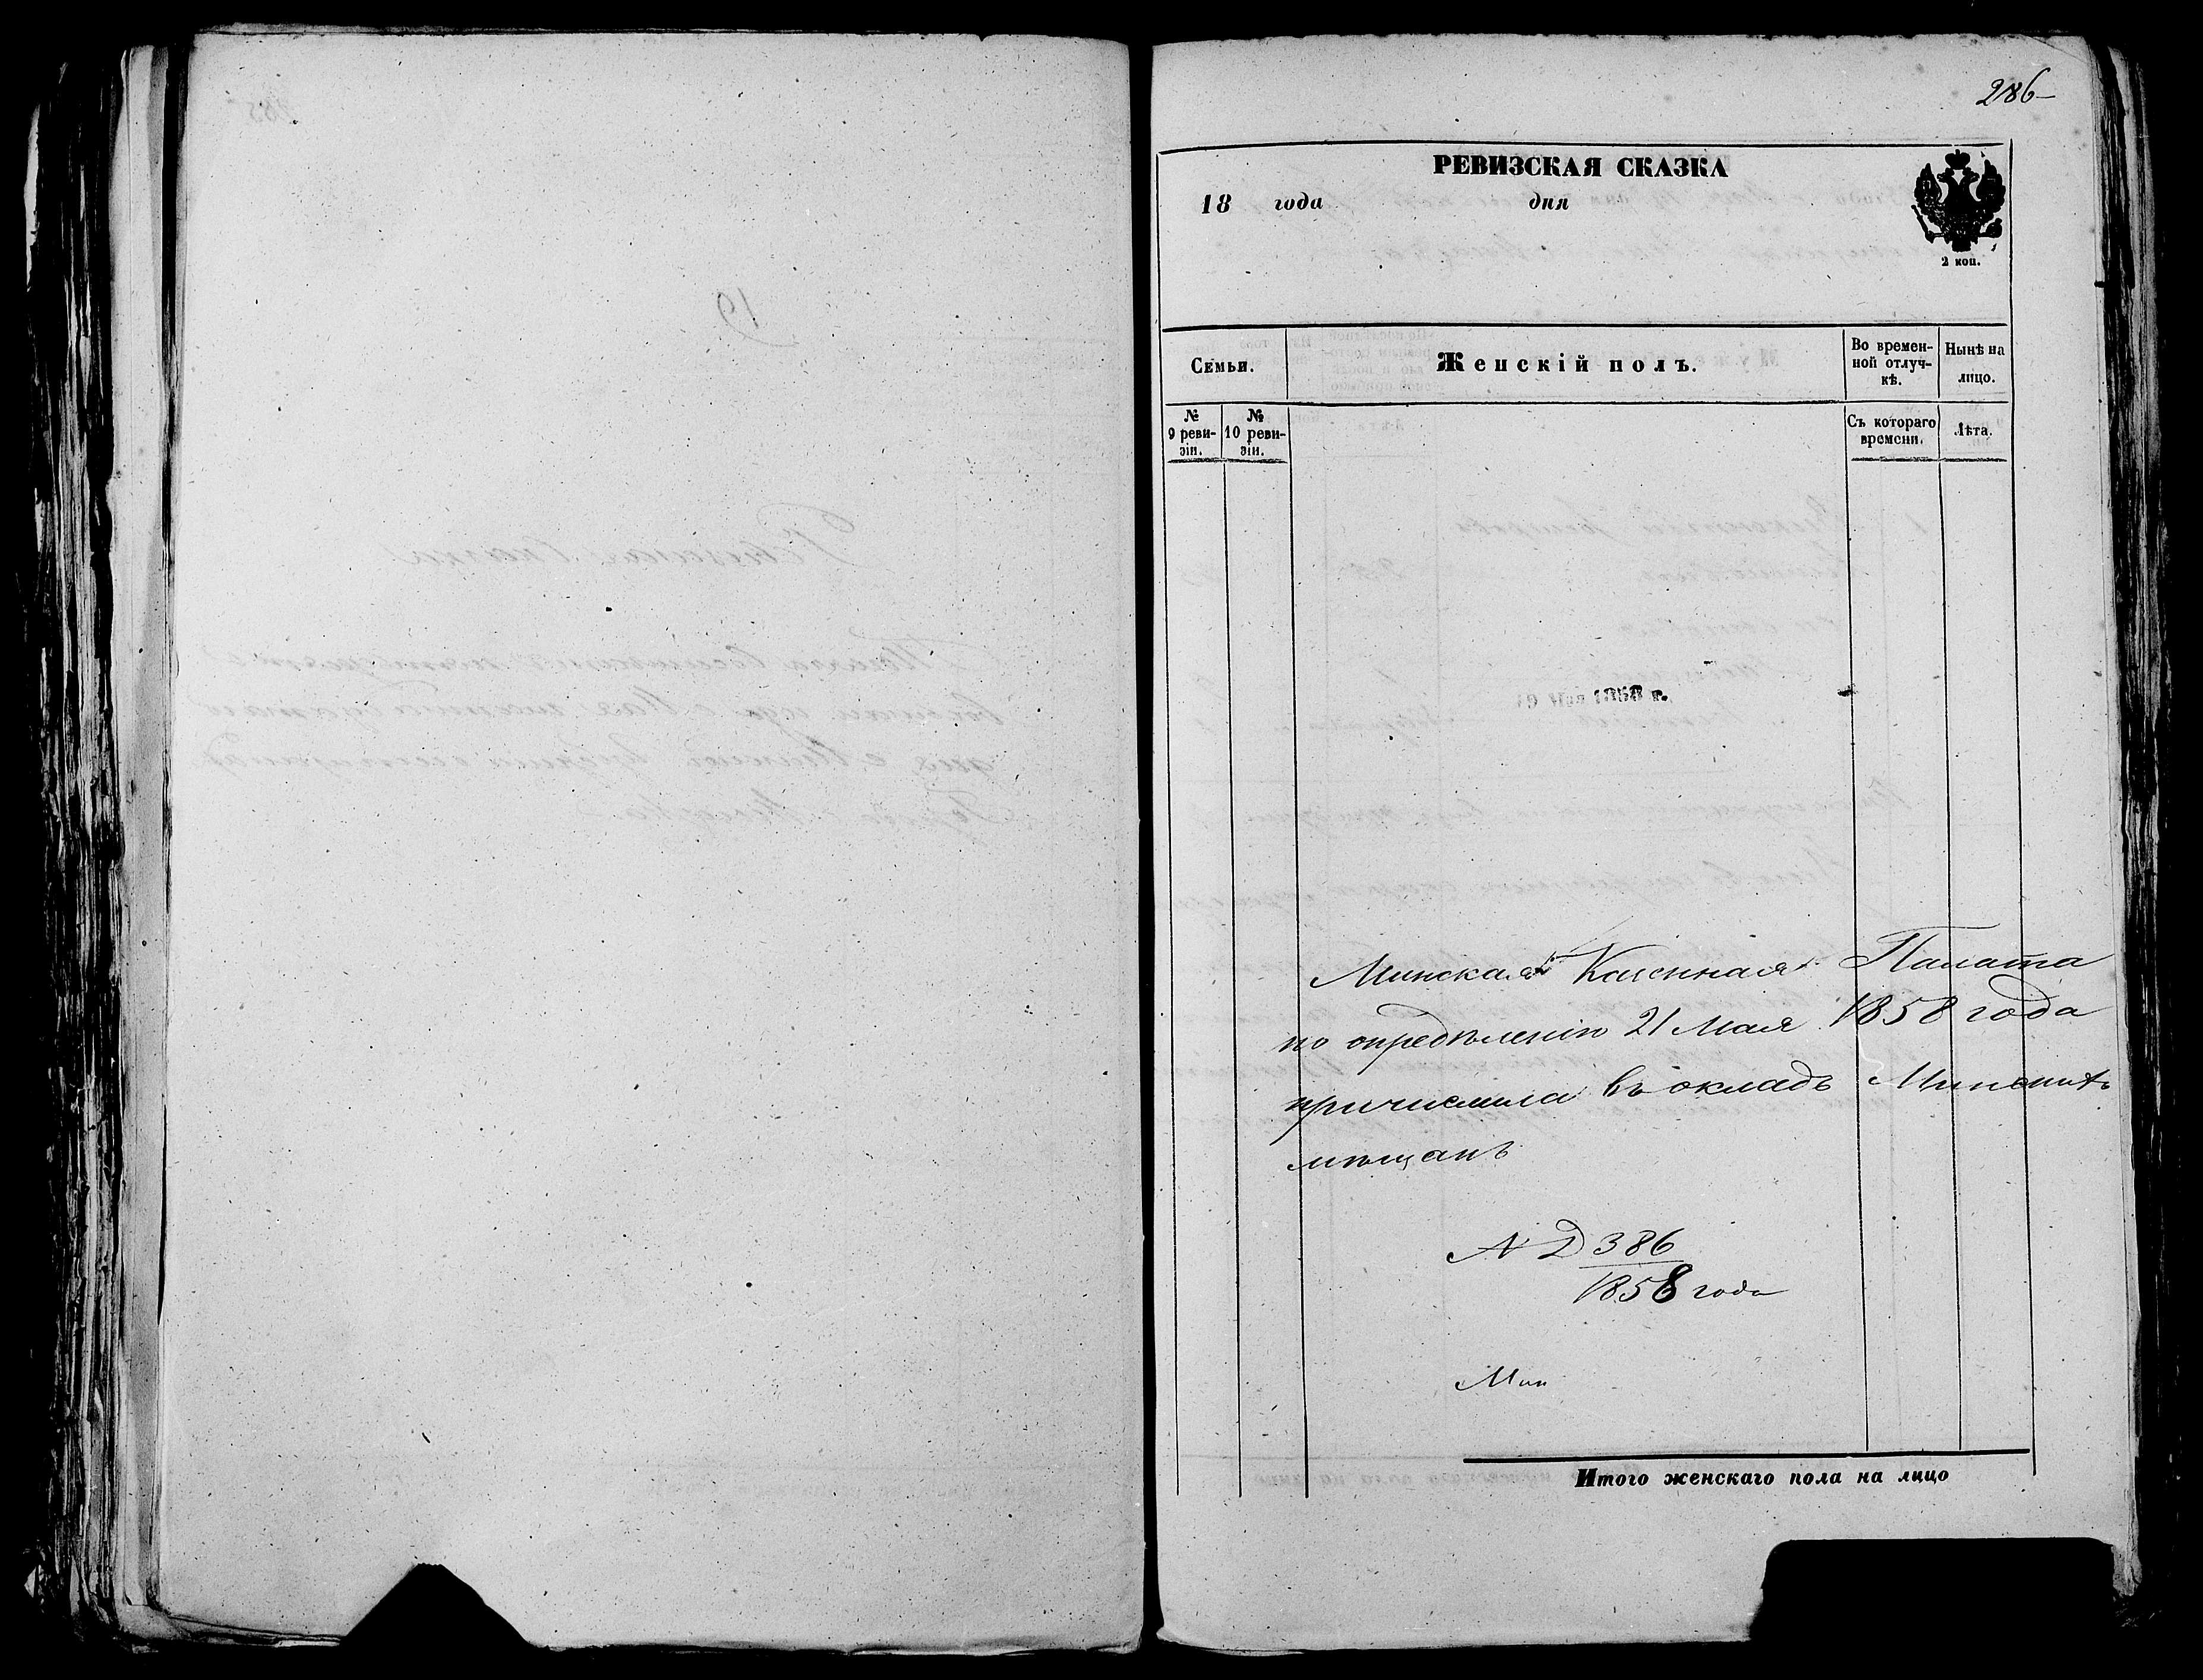 286
РЕВИЗСКАЯ СКАЗКА
18 года дня
2 коп.
Семьи.
Женскій полъ.
Во времен-
ной отлуч-
кѣ.
Нынѣ на
лицо.
№
9 реви-
зіи.
№
10 реви-
зіи.
Съ котораго
времени.
Лѣта.
19 Мая 1858 г.
Минская Казенная Палата
по опредѣленію 21 Мая 1858 года
причислила въ окладъ Минскихъ
мѣщанъ
N Д 386
1858 года
Мин
Итого женскаго пола на лицо